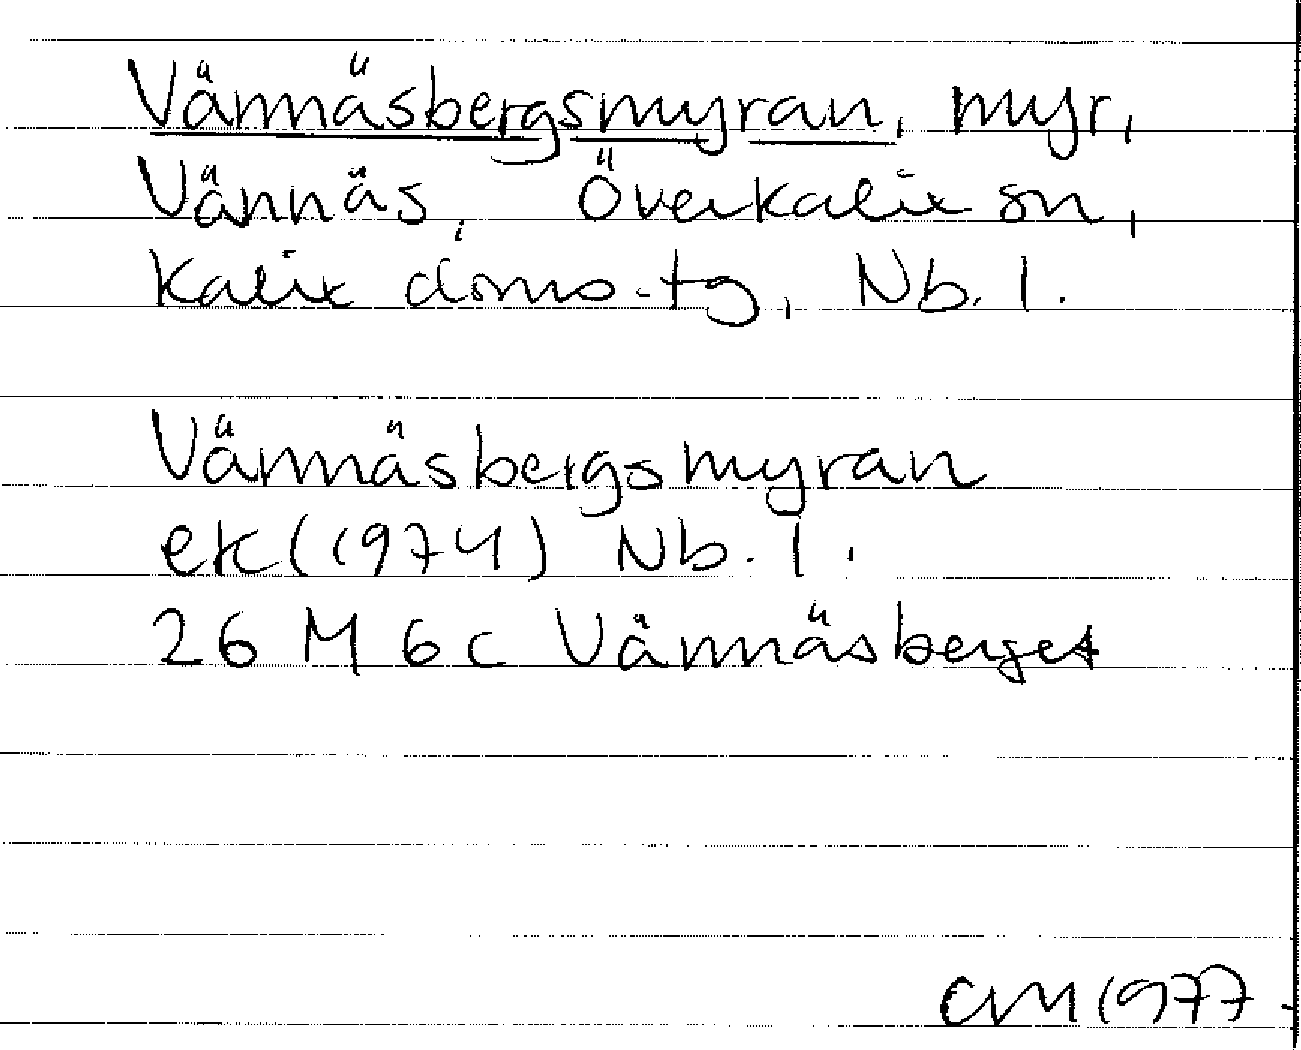 Vännäsbergsmyran, myr,
Vännäs, Överkalix sn,
Kalix doms.tg, Nb. l.
Vännäsbergsmyran
ek (1974) Nb. l.
26 M 6c Vännäsberget
CM 1977